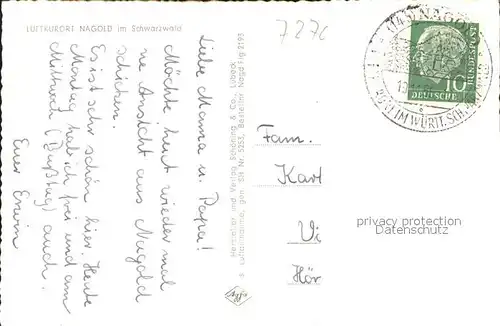 LUFTKURORT NAGOLD im Schwarzwald
7270
Liebe Mama u. Papa!
Möchte heut wieder mal
ne Ansicht aus Nagold
schicken.
Es ist sehr schön hier. Heute
Montag hab ich frei und am
Mittwoch (Bußtag) auch.
Euer Erwin
Hersteller und Verlag Schöning & Co., Lübeck
Luftaufnahme, gen. SH Nr. 5253, Bestellnr. Nagd Flg 2195
Fam.
Karl
Vi
Hör
NAGOLD
IM WÜRTT. SCHWARZWALD
10
DEUTSCHE
BUNDESPOST
privacy protection
Datenschutz